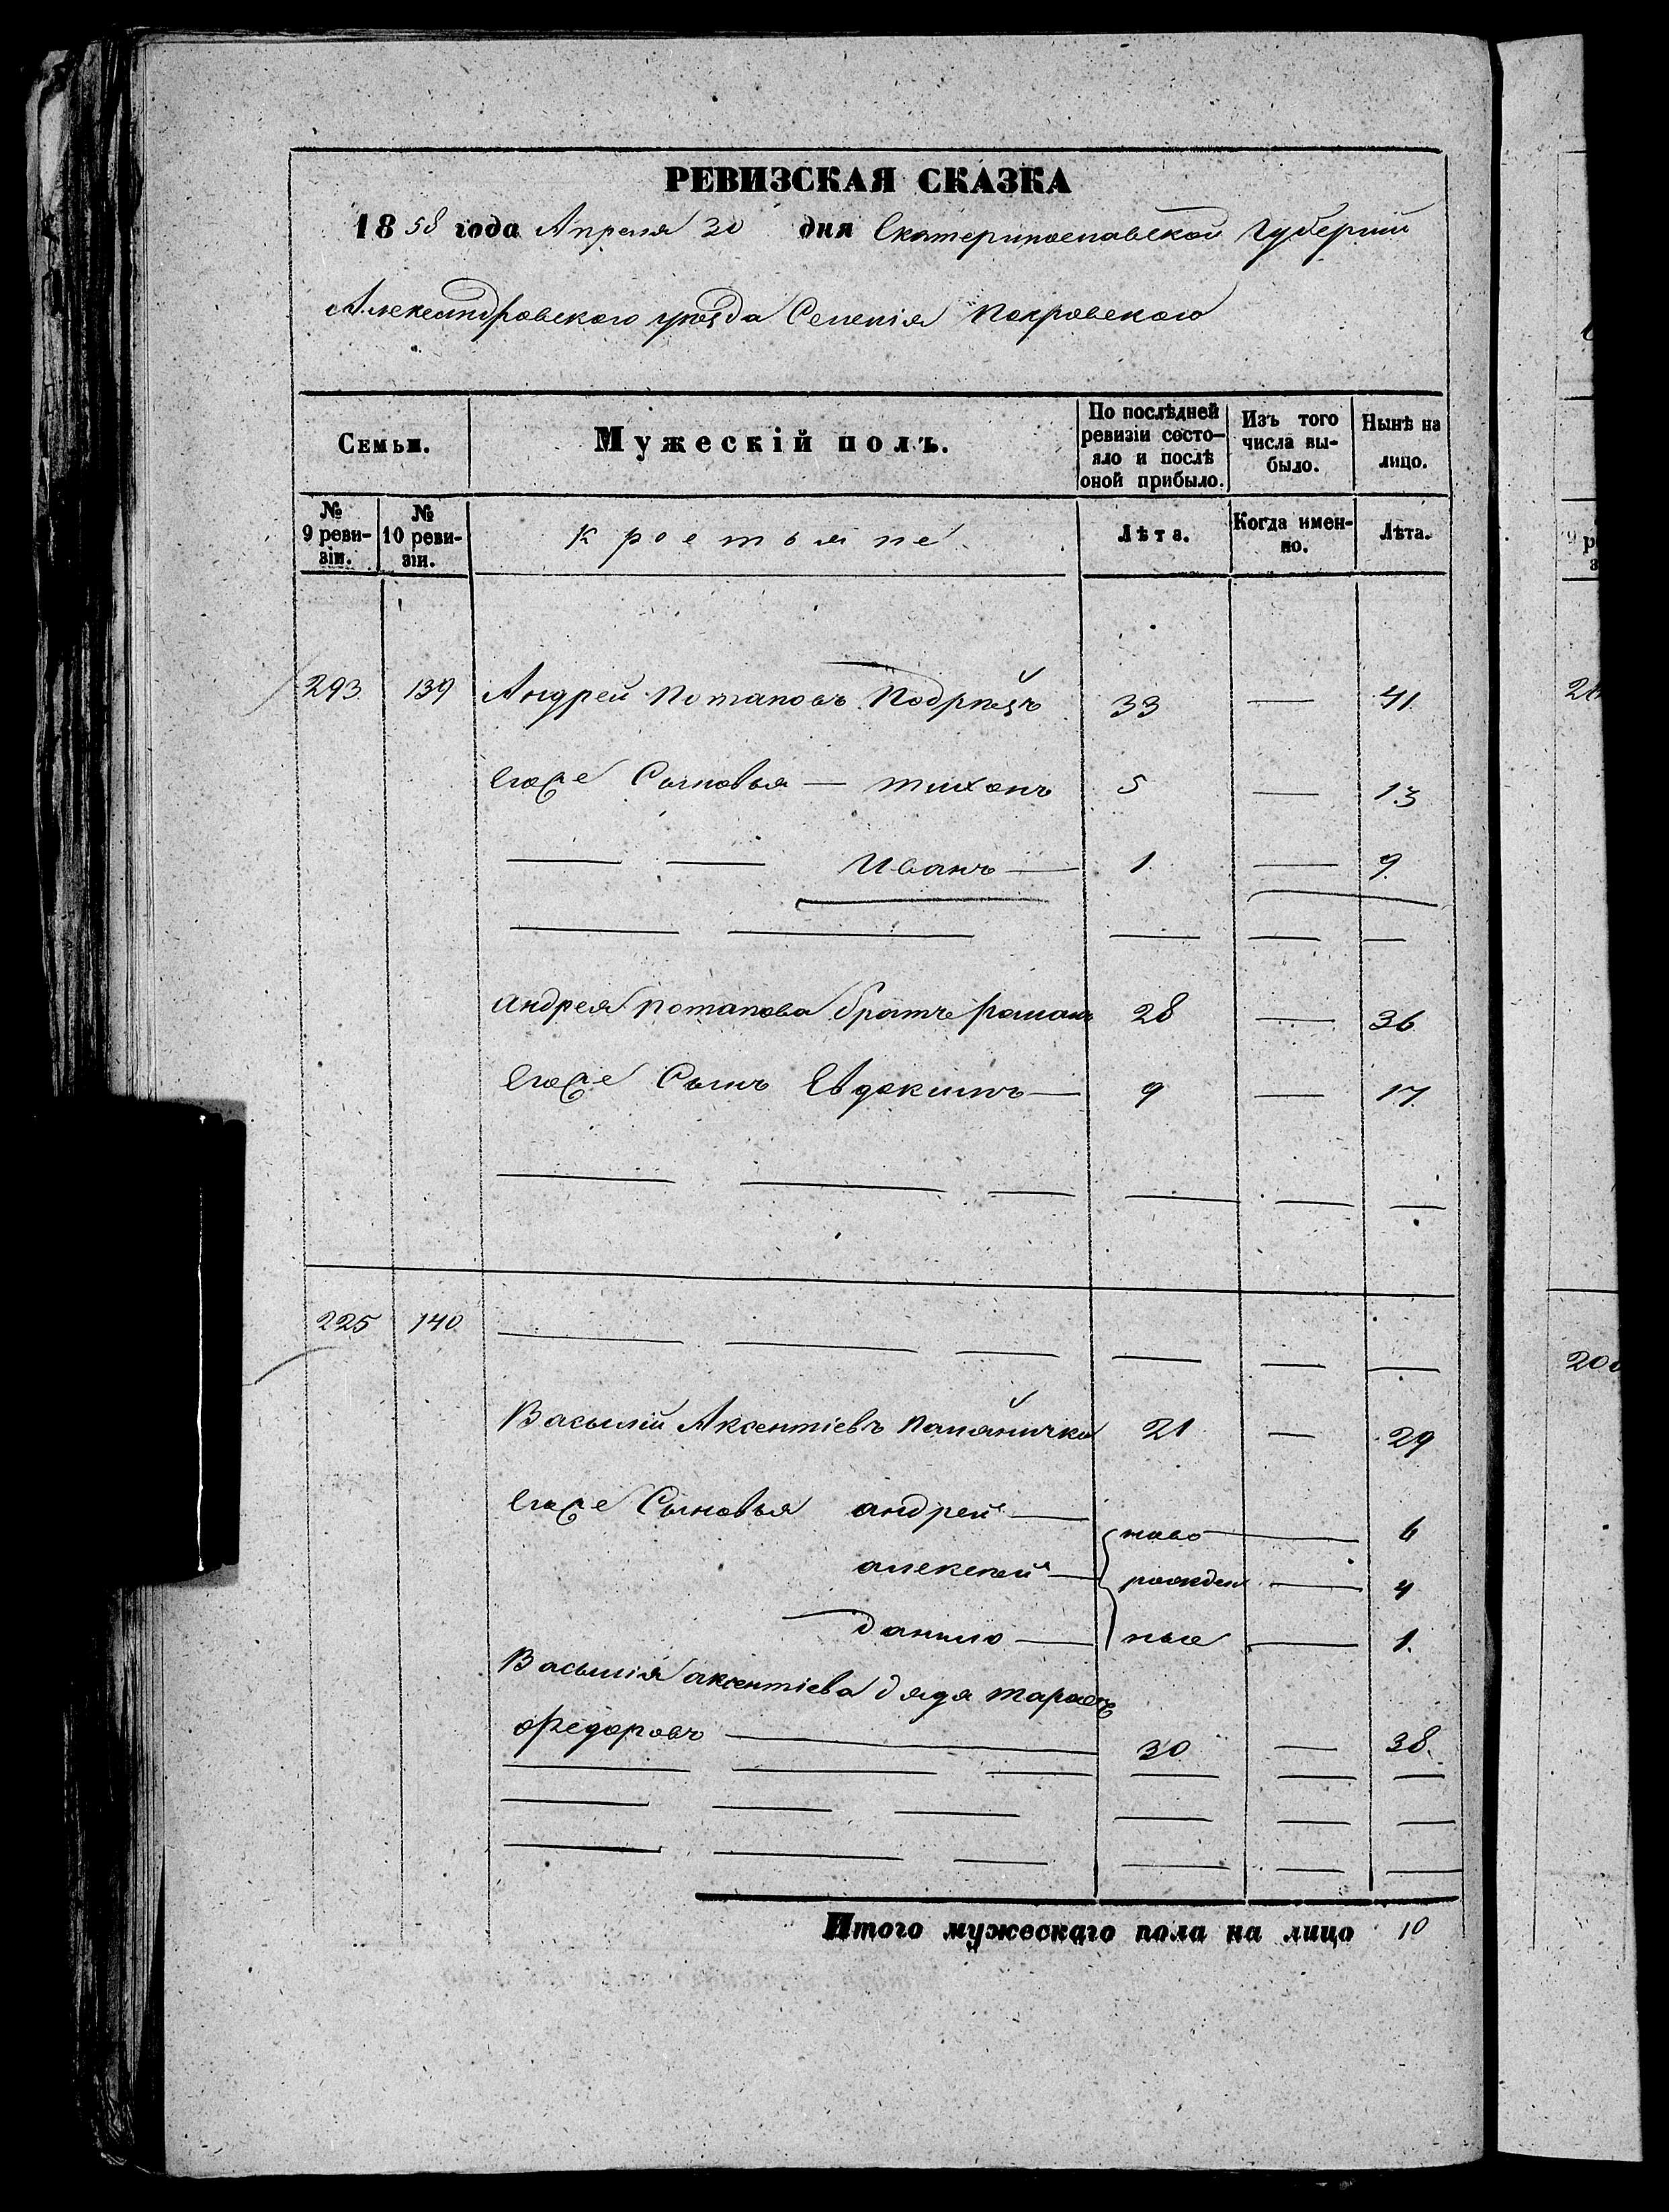 РЕВИЗСКАЯ СКАЗКА
1858 года Апреля 30 дня Екатеринославской Губернии
Александровского уезда Селенія Покровского
Семьи. Мужескій полъ. По послѣдней ревизіи состо- яло и послѣ оной прибыло. Изъ того числа вы- было. Нынѣ на лицо.
№ 9 реви- зіи. № 10 реви- зіи. Крестьяне Лѣта. Когда имен- но. Лѣта.
293 139 Андрей Потаповъ Подрѣзъ 33 — 41
Егоже Сыновья — Тихонъ 5 — 13
— — Иванъ — 1 — 9
Андрея Потапова братъ Романъ 28 — 36
Егоже Сынъ Евдокимъ — 9 — 17
225 140
Василій Аксентіевъ 21 — 29
Егоже Сыновья андрей — ново — 6
алексей — рожден — 4
данило — ные — 1.
Василія аксентіева дядя тарасъ
Федоровъ — 30 — 38.
Итого мужескаго пола на лицо 10